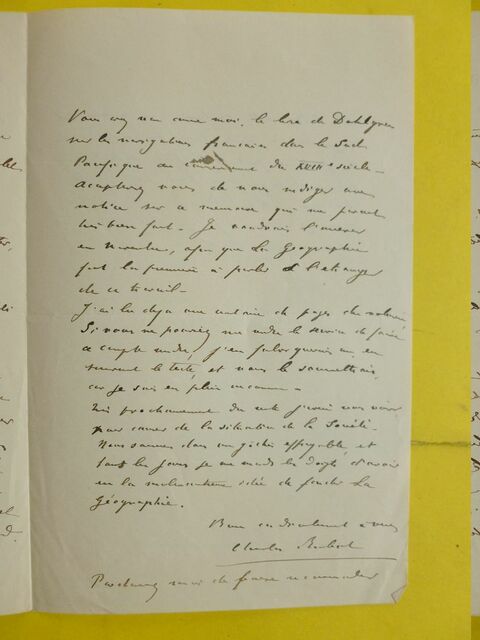 Vous avez reçu comme moi, le livre de Dahlgren
sur les navigations françaises dans le Sud
Pacifique au commencement du XVIIIe siècle.
Accepteriez vous de nous rédiger une
notice sur ce mémoire qui me paraît
très bien fait. Je voudrais l'insérer
en Novembre, afin que La Géographie
fut la première à parler à l'étranger
de ce travail.
J'ai lu déjà une centaine de pages du
Si vous ne pouviez me rendre le service de faire
ce compte rendu, j'en un en
suivant le texte, et vous le soumettrais
car je suis en plein inconnu.
Très prochainement du reste j'irai vous voir
pour causer de la situation de la Société.
Nous sommes dans un gâchis effroyable, et
tous les jours je me mords les doigts d'avoir
eu la malencontreuse idée de fonder La
Géographie.
Bien cordialement à vous
Charles Rabot
Pardonnez moi de